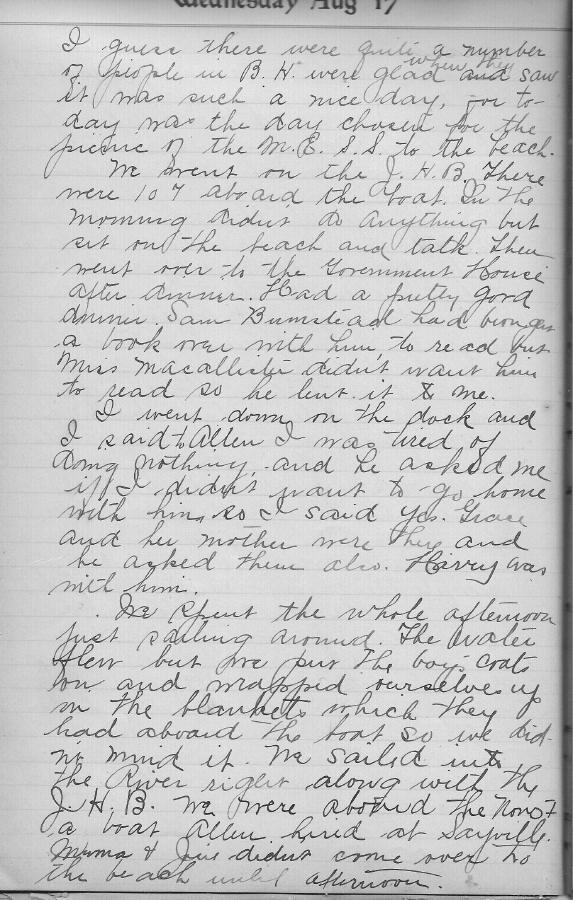 Wednesday Aug 17
I guess there were quite a number
of people in B. H. were glad when they and saw
it was such a nice day, for to-
day was the day chosen for the
picnic of the M. E. S. S. to the beach.
We went on the J. H. B. There
were 107 aboard the boat. In the
morning didnt do anything but
sit on the beach and talk. Then
went over to the Government House
after dinner. Had a pretty good
dinner. Sam Bumstead had brought
a book over with him to read but
Miss Macallister didn't want him
to read so he lent it to me.
I went down on the dock and
I said to Allen I was tired of
doing nothing, and he asked me
if I didn't want to go home
with him, so I said yes. Grace
and her mother were there and
he asked them also. Harry was
with him.
We spent the whole afternoon
just sailing around. The water
flew but we put the boys coats
on and wrapped ourselves up
in the blankets which they
had aboard the boat so we did
not mind it. We sailed into
the River right along with the
J. H. B. We were aboard the
a boat Allen hired at Sayville.
Mama & didnt come over to
the beach until afternoon.